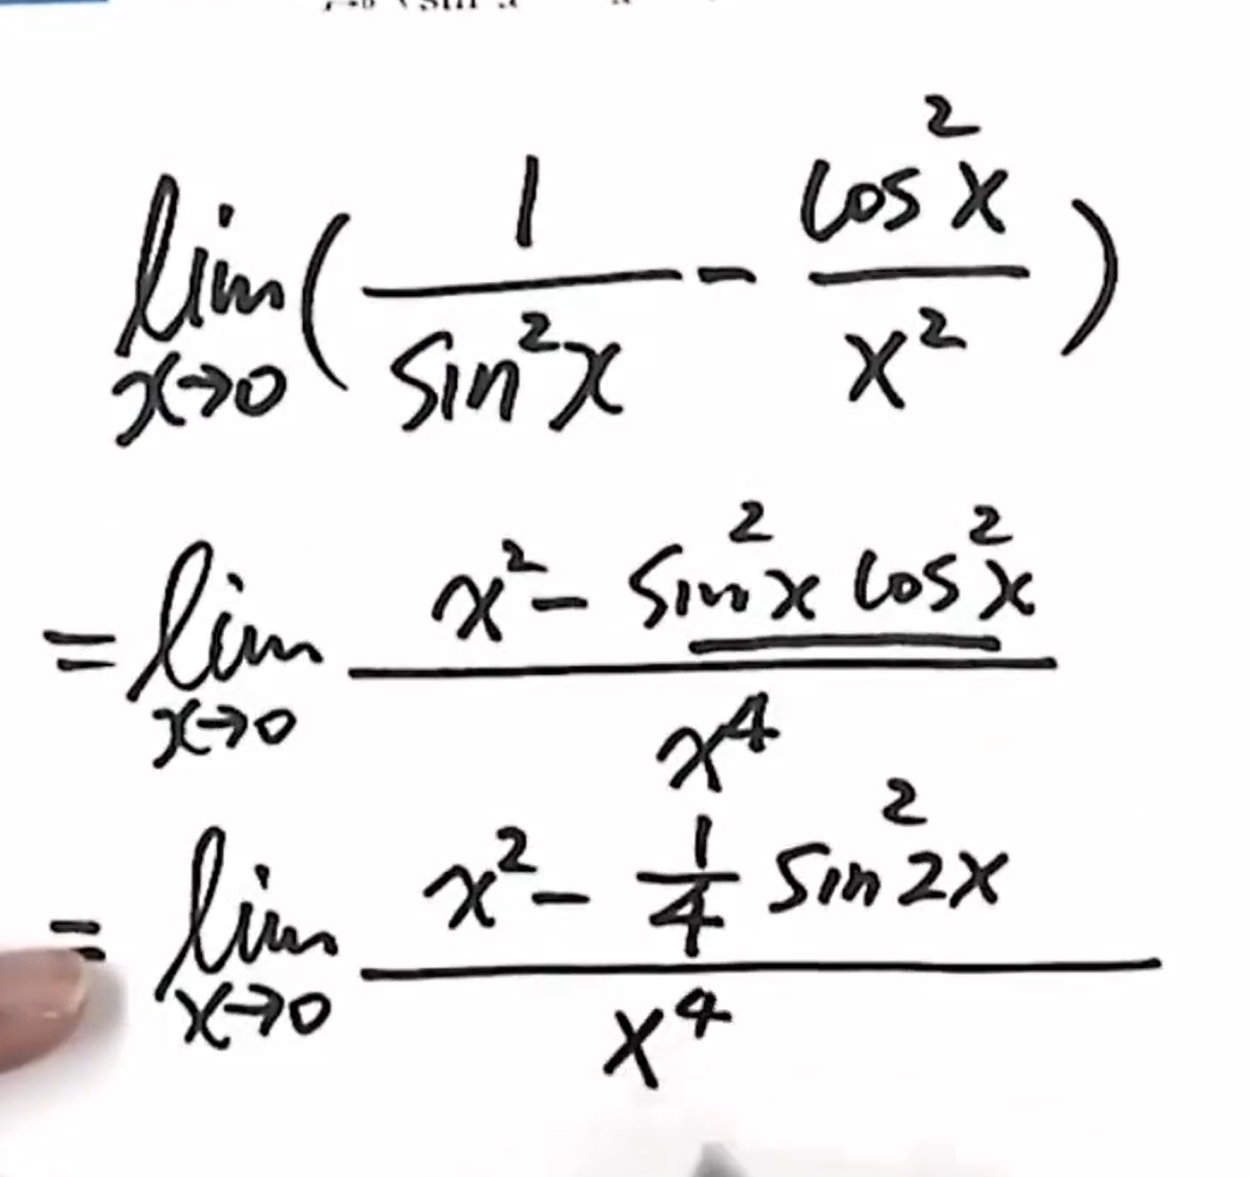 lim x→0 ( 1 / sin²x - cos²x / x² )
= lim x→0 x² - sin²x cos²x / x⁴
= lim x→0 x² - 1/4 sin²2x / x⁴